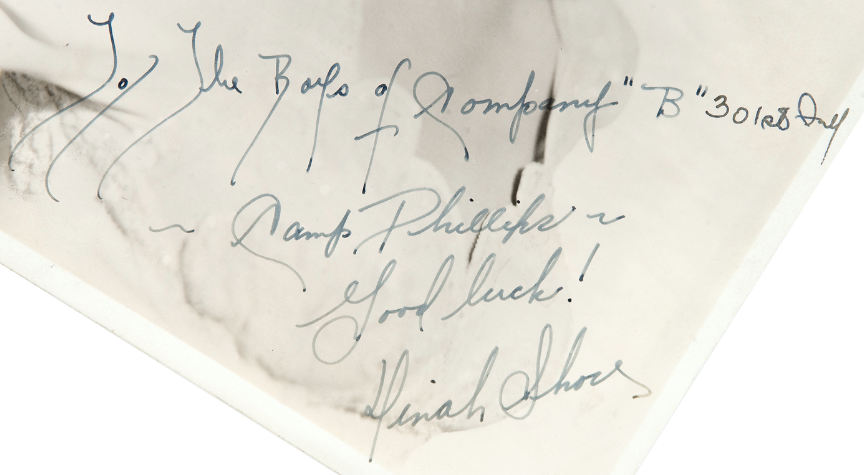 To The Boys of Company "B" 301st Inf
~ Camp Phillips ~
Good luck!
Dinah Shore